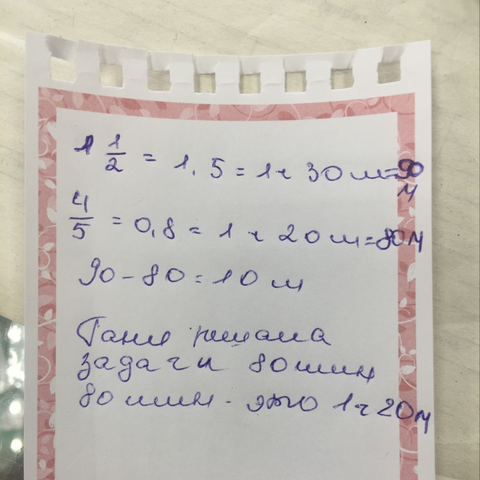 1 1/2 = 1,5 = 1ч 30м=90м
4/5 = 0,8 = 1ч 20м=80м
90-80=10м
Таня решала
задачи 80мин
80мин - это 1ч20м